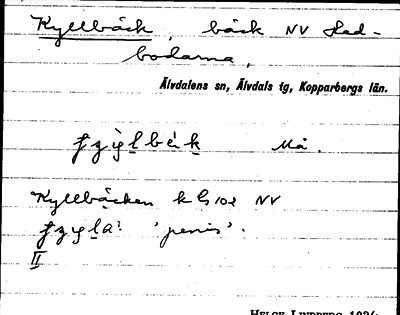 Kyllbäck, bäck NV Hed-
bodarna,
Älvdalens sn, Älvdals tg, Kopparbergs län.
Må.
Kyllbäcken k G 102 NV
'penis'.
II
HELGE LINDBERG 1934